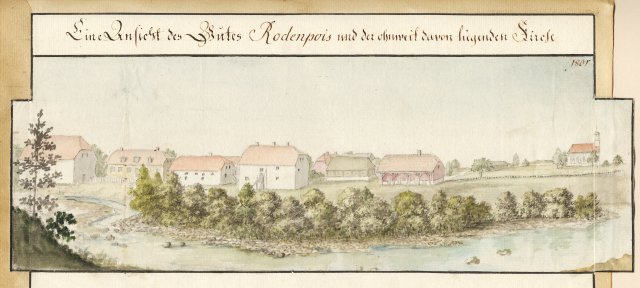 Eine Ansicht des Gutes Rodenpois und der ohnweit davon liegenden Kirche
1801